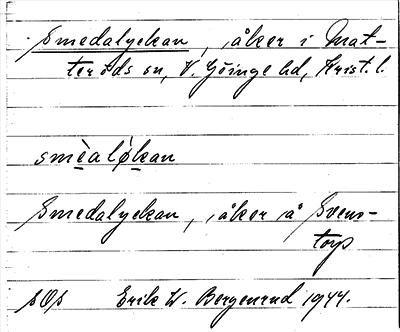 Smedalyckan, åker i Mat-
teröds sn, V. Göinge hd, Krist. l.
smèaløkan
Smedalyckan, åker å Svens-
torp
SOs Erik W. Bergenrud 1944.